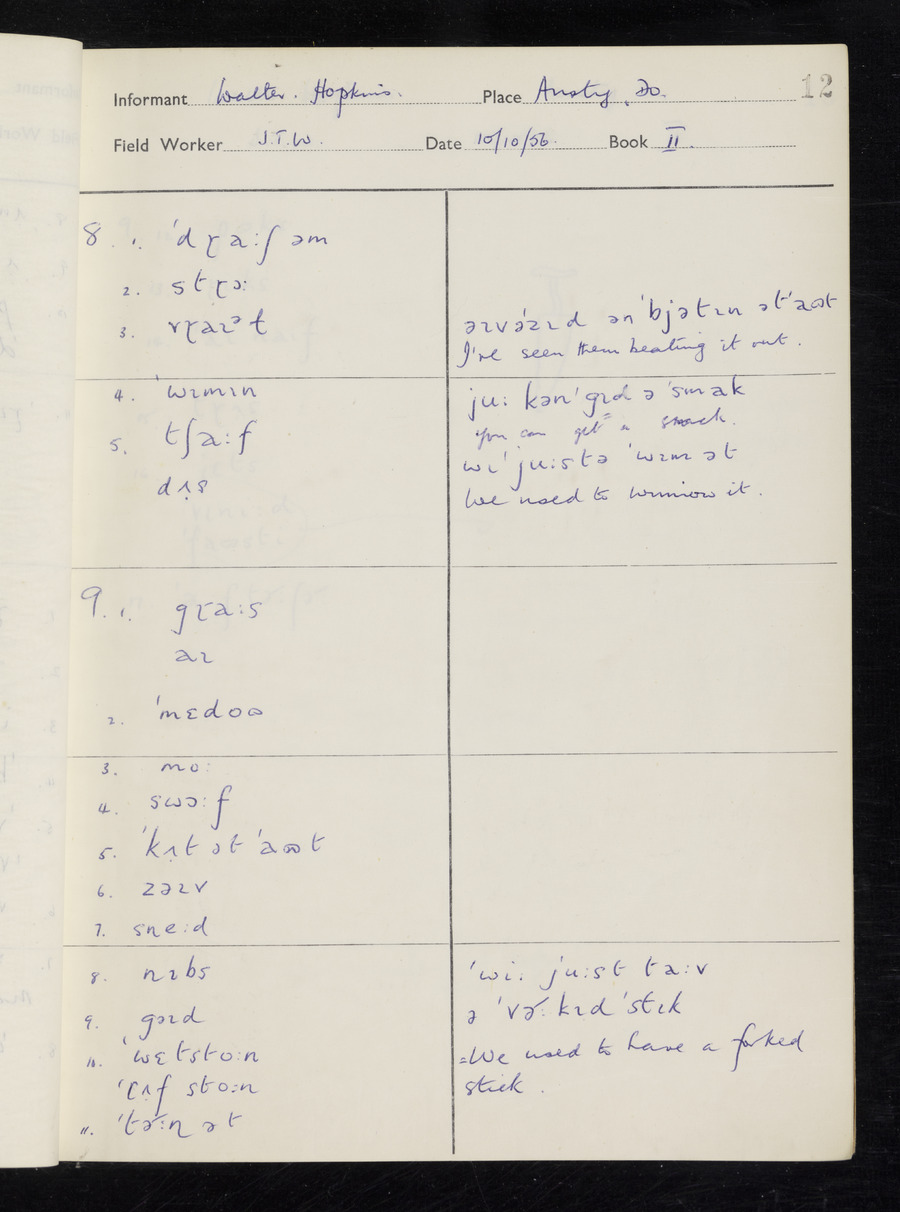 Informant Walter. Hopkins. Place Ansty, Do. 12
Field Worker J.T.W. Date 10/10/56. Book II.
8. 1. ˈdɽaːʃ əm
2. stɽɔː
3. vɽaɪᵊɫ
əɪvəˈzɪd ən ˈbjətɪn ətˈaʊt
I've seen them beating it out.
4. ˈwɪmɪn
juː kənˈgɪd ə ˈsmak
you can get a smack.
5. tʃaːf
wiˈjuːstə ˈwɪm ət
dʌ̣s
We used to winnow it.
9. 1. gɽaːs
aɪ
2. ˈmɛdoʊ
3. moː
4. swɔːf
5. ˈkʌ̣t ət ˈaʊt
6. zəɪv
7. sneːd
8. nɪbs
ˈwiː juːst taːv
9. gəɪd
ə ˈvɚːkɪd ˈstɪk
10. ˈwɛtstoːn
=We used to have a forked
ˈɽʌf stoːn
stick.
11. ˈtɚːɳ ət